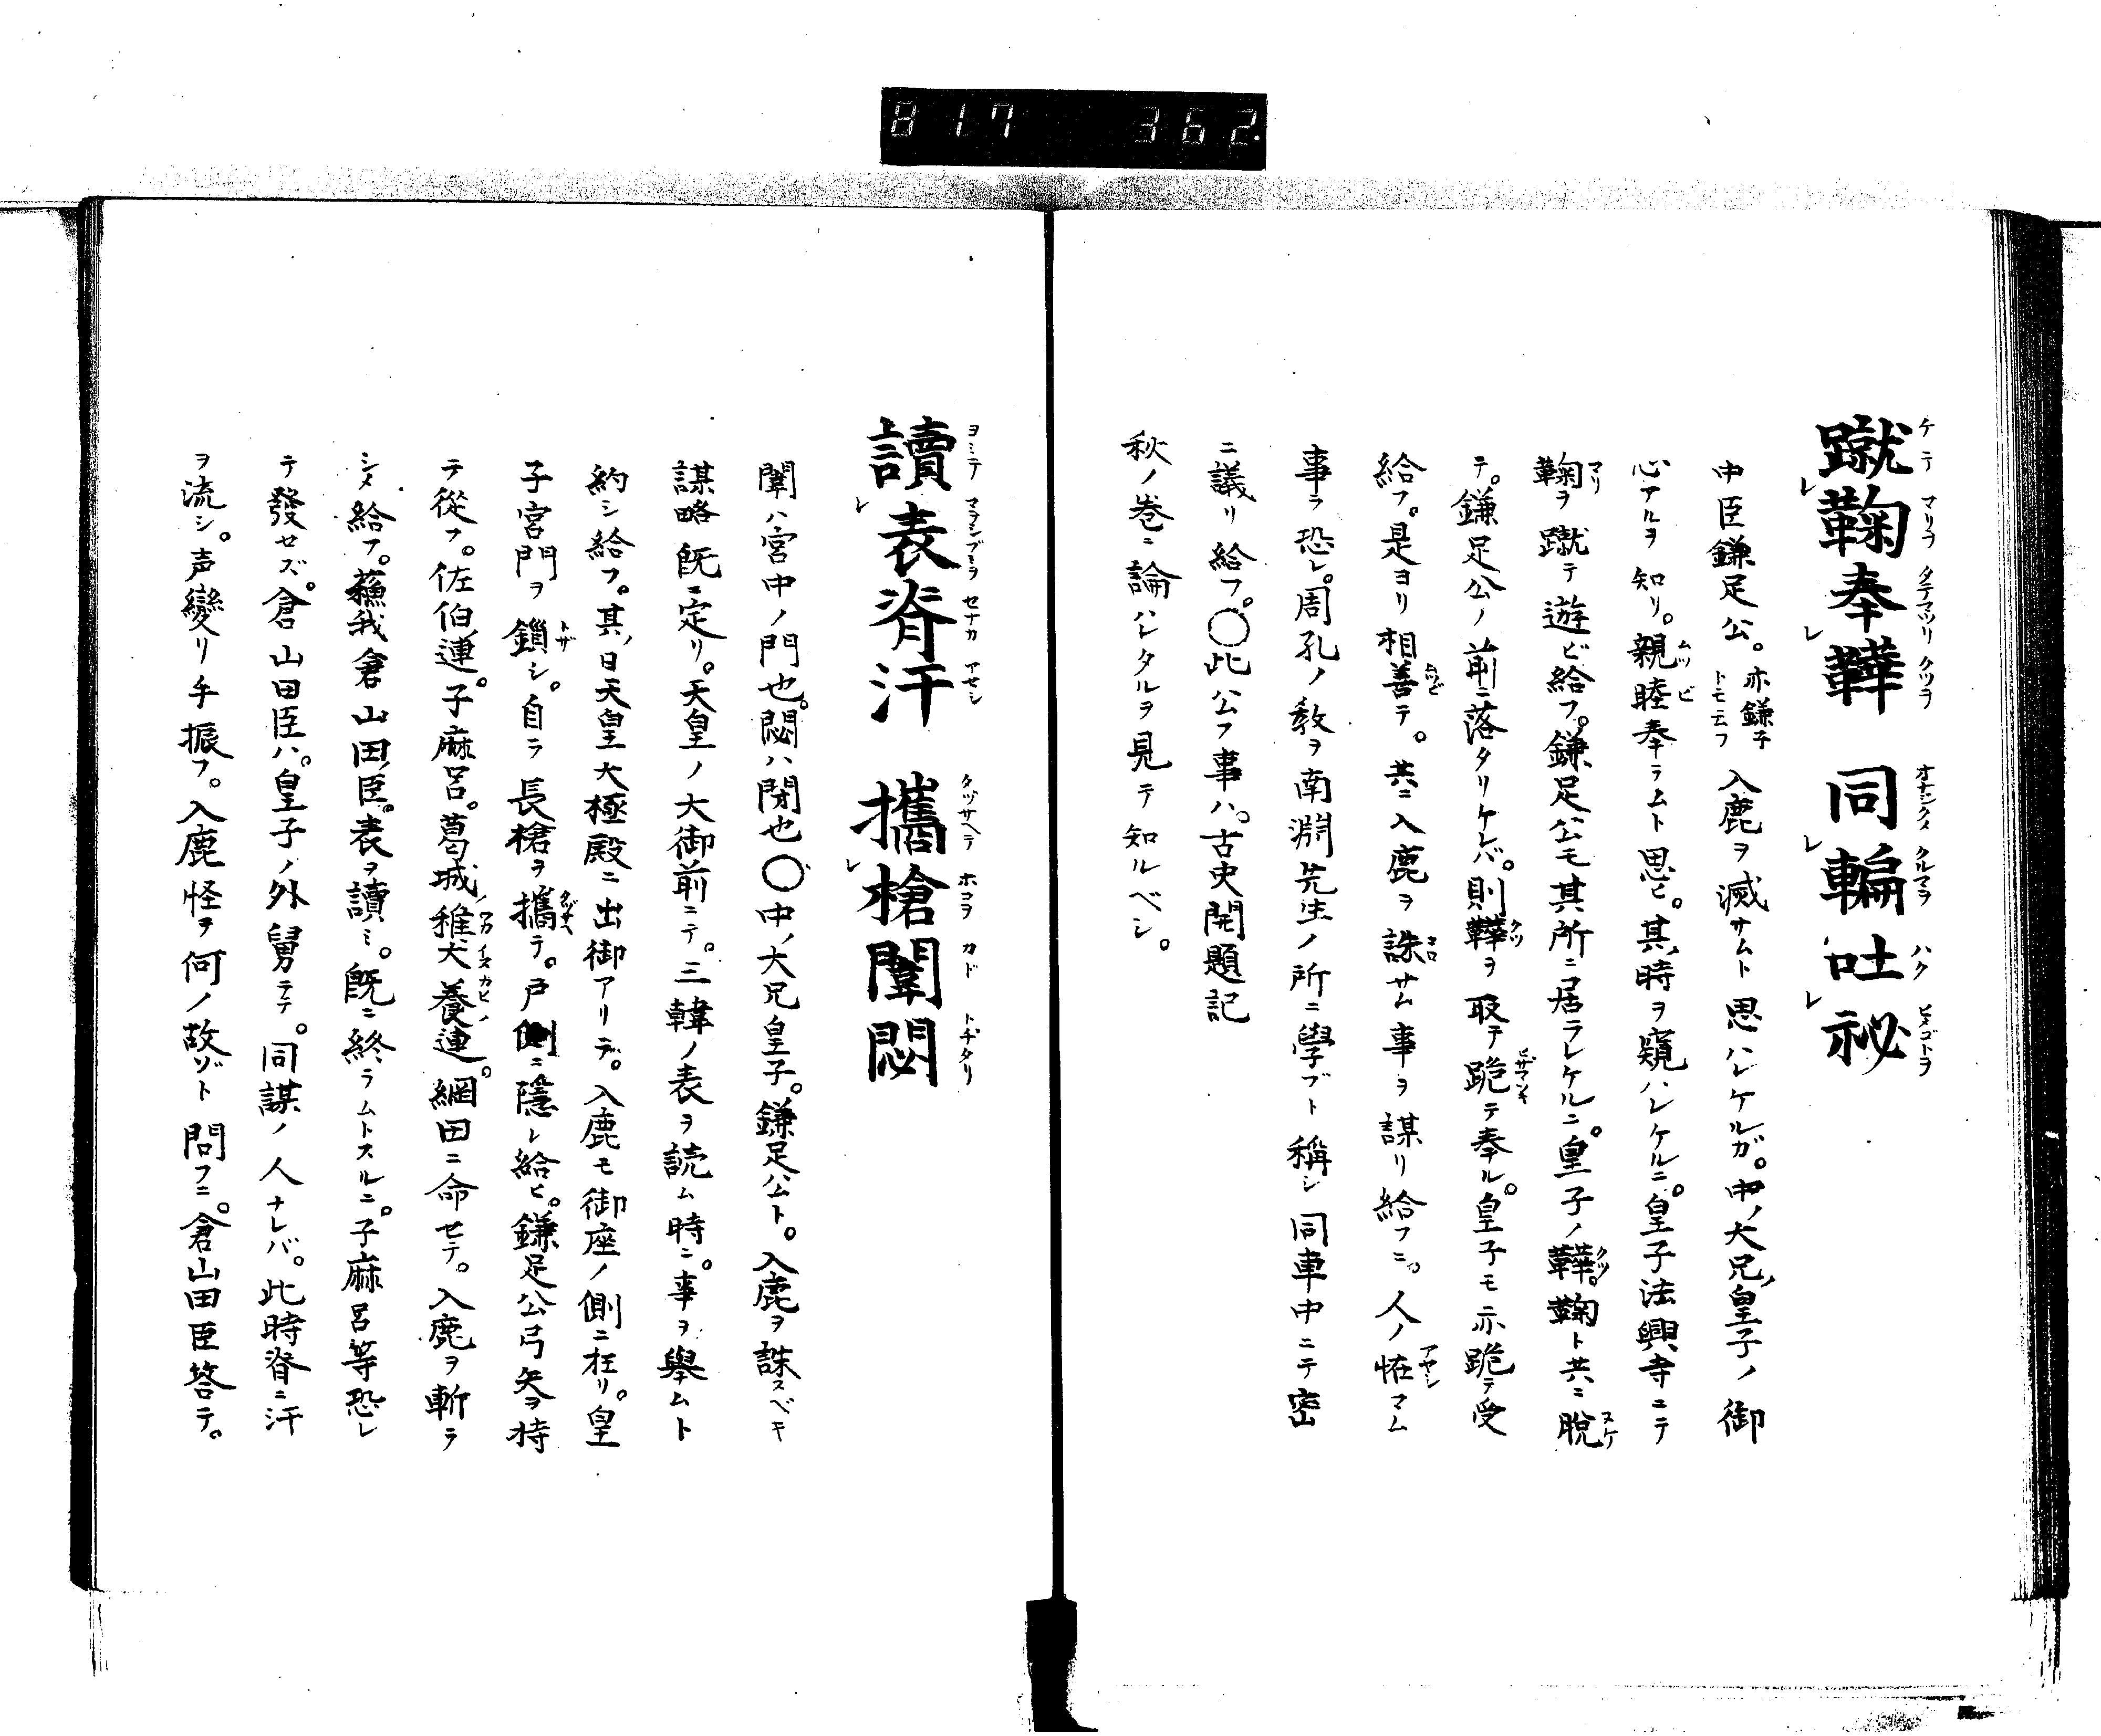 817 362
蹴鞠奉鞾 同輪吐祕
中臣鎌足公。亦鎌子トモ云フ入鹿ヲ滅サムト思ハレケルガ。中ノ大兄ノ皇子ノ御
心アルヲ知リ。親睦奉ラムト思ヒ。其ノ時ヲ窺ハレケルニ。皇子法興寺ニテ
鞠ヲ蹴テ遊ビ給フ。鎌足公モ其所ニ居ラレケルニ。皇子ノ鞾。鞠ト共ニ脫
テ。鎌足公ノ前ニ落タリケレバ。則鞾ヲ取テ跪テ奉ル。皇子モ亦跪テ受
給フ。是ヨリ相善テ。共ニ入鹿ヲ誅サム事ヲ謀リ給フニ。人ノ恠マム
事ヲ恐レ。周孔ノ敎ヲ南淵先生ノ所ニ學ブト稱シ同車中ニテ密
ニ議リ給フ。〇此公ノ事ハ。古史開題記
秋ノ巻ニ論ハレタルヲ見テ知ルベシ。
讀表脊汗 攜槍闈閟
闈ハ宮中ノ門也。閟ハ閉也〇中ノ大兄皇子。鎌足公ト。入鹿ヲ誅スベキ
謀略既ニ定リ。天皇ノ大御前ニテ。三韓ノ表ヲ読ム時ニ。事ヲ擧ムト
約シ給フ。其ノ日天皇大極殿ニ出御アリテ。入鹿モ御座ノ側ニ在リ。皇
子宮門ヲ鎖シ。自ラ長槍ヲ攜テ。戸側ニ隱レ給ヒ。鎌足公弓矢ヲ持
テ從フ。佐伯連。子麻呂。葛城ノ稚犬養連。網田ニ命セテ。入鹿ヲ斬ラ
シメ給フ。蘓我倉山田ノ臣。表ヲ讀ミ。既ニ終ラムトスルニ。子麻呂等恐レ
テ發セズ。倉山田臣ハ。皇子ノ外舅ニテ。同謀ノ人ナレバ。此時脊ニ汗
ヲ流シ。声變リ手振フ。入鹿怪ヲ何ノ故ゾト問フニ。倉山田臣答テ。